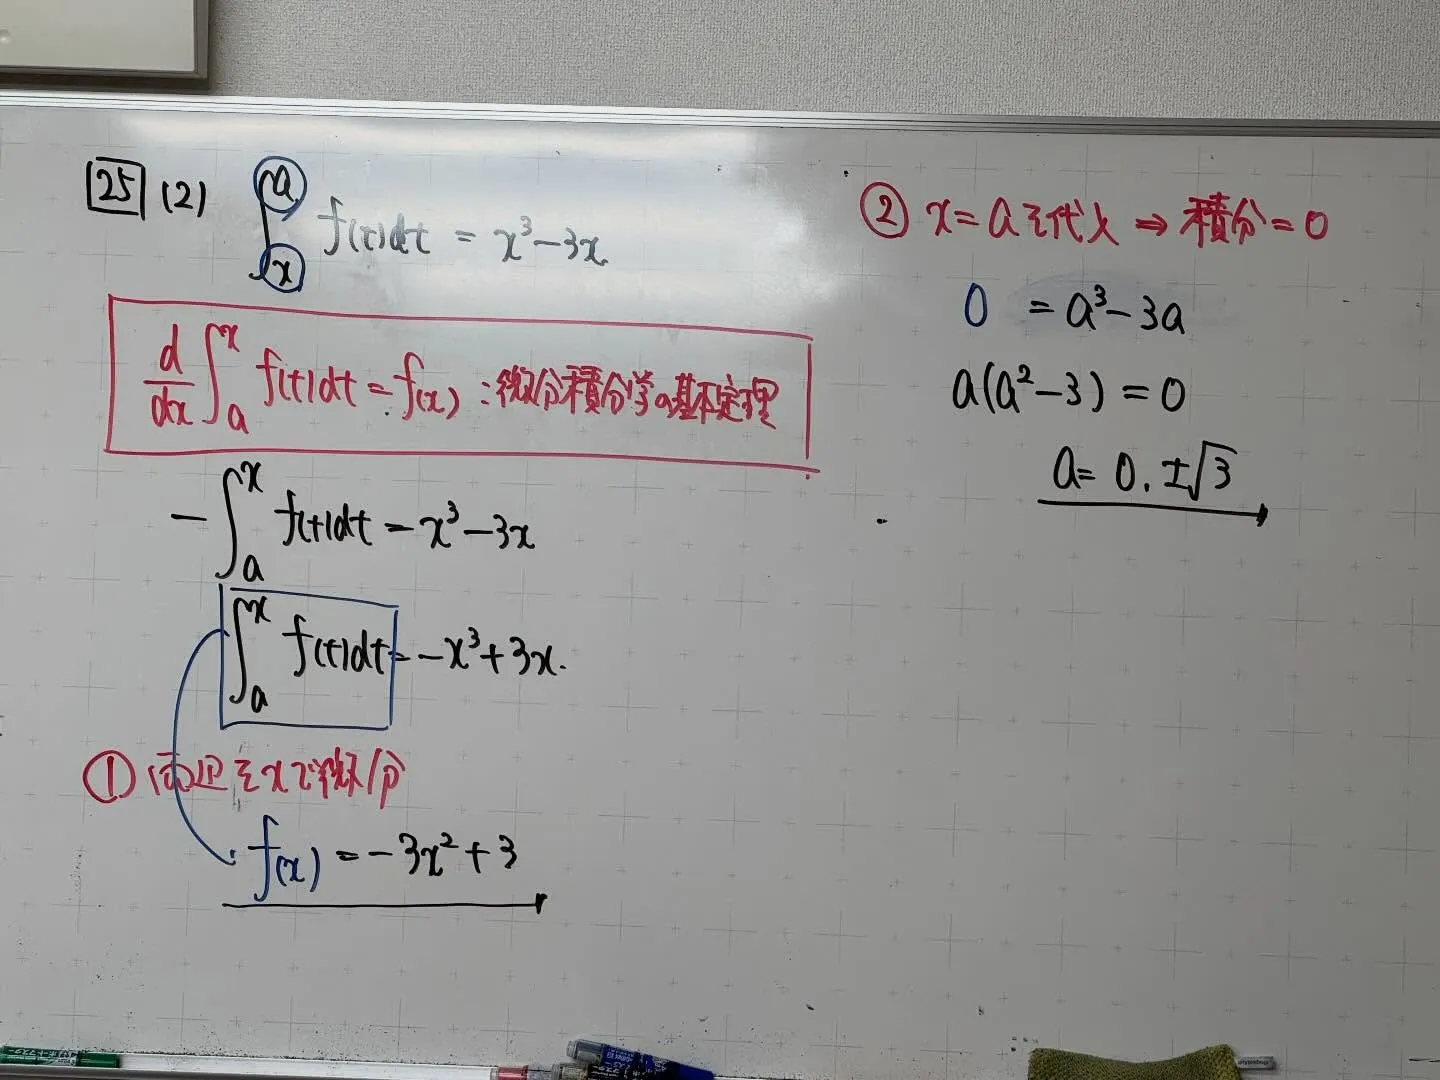 25 (2) ∫_x^a f(t)dt = x³-3x
d/dx ∫_a^x f(t)dt = f(x) : 微分積分学の基本定理
-∫_a^x f(t)dt = x³-3x
∫_a^x f(t)dt = -x³+3x.
① 両辺をxで微分
f(x) = -3x²+3
② x=aを代入 ⇒ 積分=0
0 = a³-3a
a(a²-3)=0
a=0, ±√3